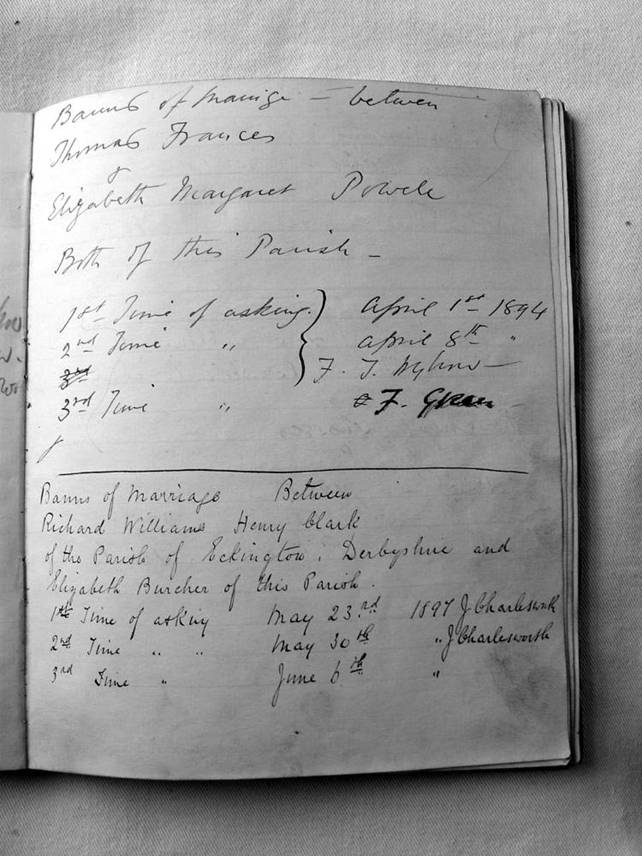 Banns of Marriage - between
Thomas Frances
&
Elizabeth Margaret Powell
Both of this Parish -
1st Time of asking. } April 1st 1894
2nd Time " April 8th "
3rd F. J.
3rd Time " F. Green
Banns of Marriage Between
Richard Williams Henry Clark
of the Parish of Eckington. Derbyshire and
Elizabeth Burcher of this Parish.
1st Time of asking May 23.rd 1897 J Charlesworth
2nd Time " " May 30th " J Charlesworth
3rd Time " June 6th "